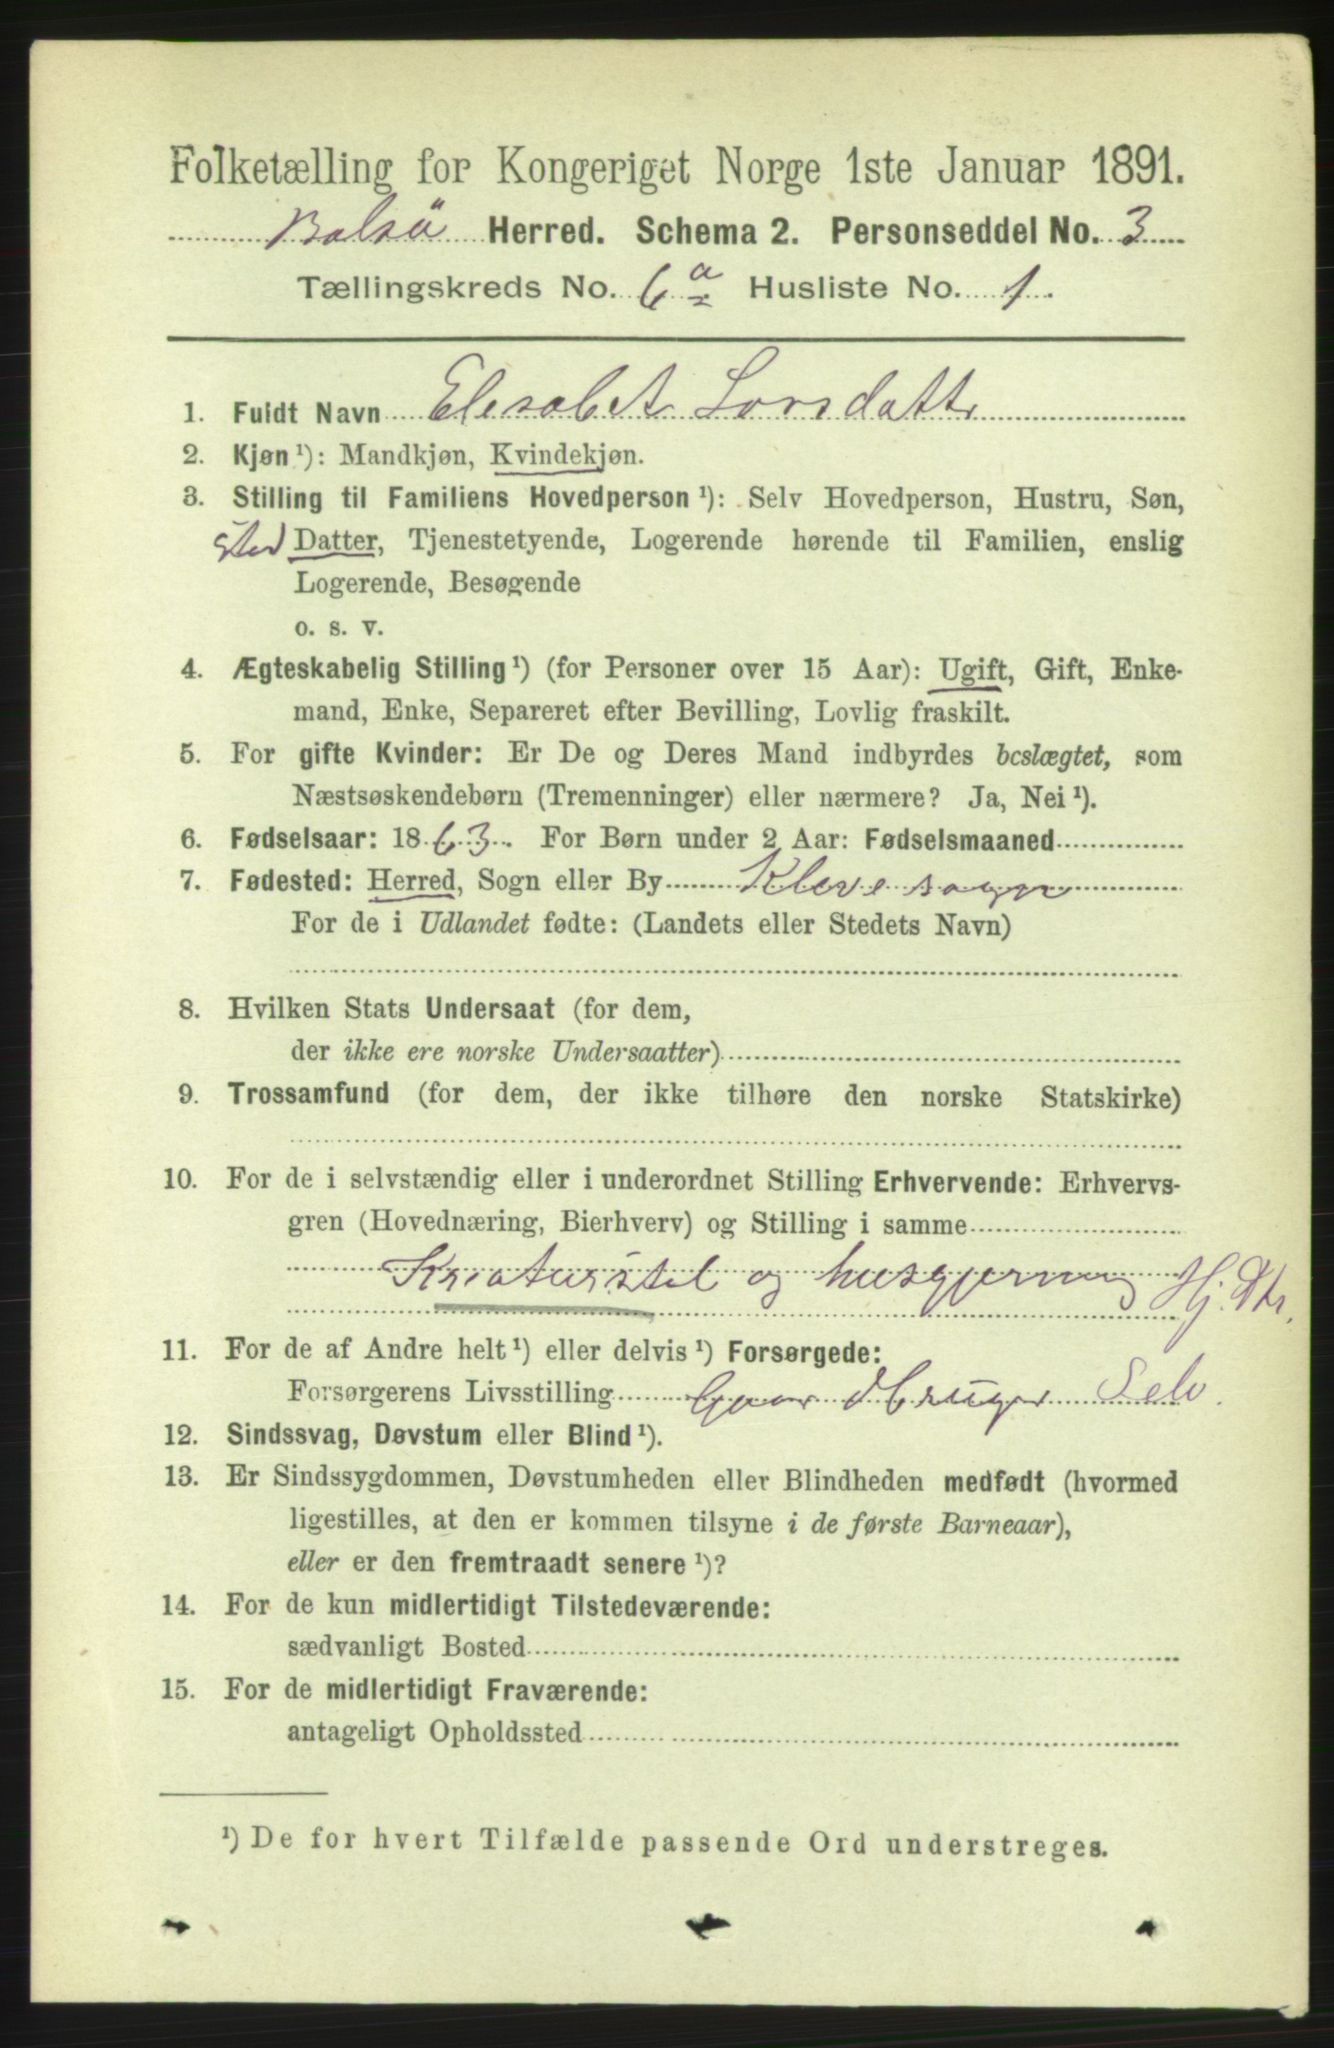 Folketælling for Kongeriget Norge 1ste Januar 1891.
Bolsö Herred. Schema 2. Personseddel No. 3
Tællingskreds No. 6 a Husliste No. 1.
1. Fuldt Navn Elisabet Larsdatt
2. Kjøn ¹): Mandkjøn, Kvindekjøn.
3. Stilling til Familiens Hovedperson ¹): Selv Hovedperson, Hustru, Søn,
Sted Datter, Tjenestetyende, Logerende hørende til Familien, enslig
Logerende, Besøgende
o. s. v.
4. Ægteskabelig Stilling ¹) (for Personer over 15 Aar): Ugift, Gift, Enke-
mand, Enke, Separeret efter Bevilling, Lovlig fraskilt.
5. For gifte Kvinder: Er De og Deres Mand indbyrdes beslægtet, som
Næstsøskendebørn (Tremenninger) eller nærmere? Ja, Nei ¹).
6. Fødselsaar: 1863. For Børn under 2 Aar: Fødselsmaaned
7. Fødested: Herred, Sogn eller By Kleve sogn
For de i Udlandet fødte: (Landets eller Stedets Navn)
8. Hvilken Stats Undersaat (for dem,
der ikke ere norske Undersaatter)
9. Trossamfund (for dem, der ikke tilhøre den norske Statskirke)
10. For de i selvstændig eller i underordnet Stilling Erhvervende: Erhvervs-
gren (Hovednæring, Bierhverv) og Stilling i samme
Kreaturstel og husgjerning Hj. Dtr.
11. For de af Andre helt ¹) eller delvis ¹) Forsørgede:
Forsørgerens Livsstilling Gaardbruger Selv.
12. Sindssvag, Døvstum eller Blind ¹).
13. Er Sindssygdommen, Døvstumheden eller Blindheden medfødt (hvormed
ligestilles, at den er kommen tilsyne i de første Barneaar),
eller er den fremtraadt senere ¹)?
14. For de kun midlertidigt Tilstedeværende:
sædvanligt Bosted
15. For de midlertidigt Fraværende:
antageligt Opholdssted
¹) De for hvert Tilfælde passende Ord understreges.